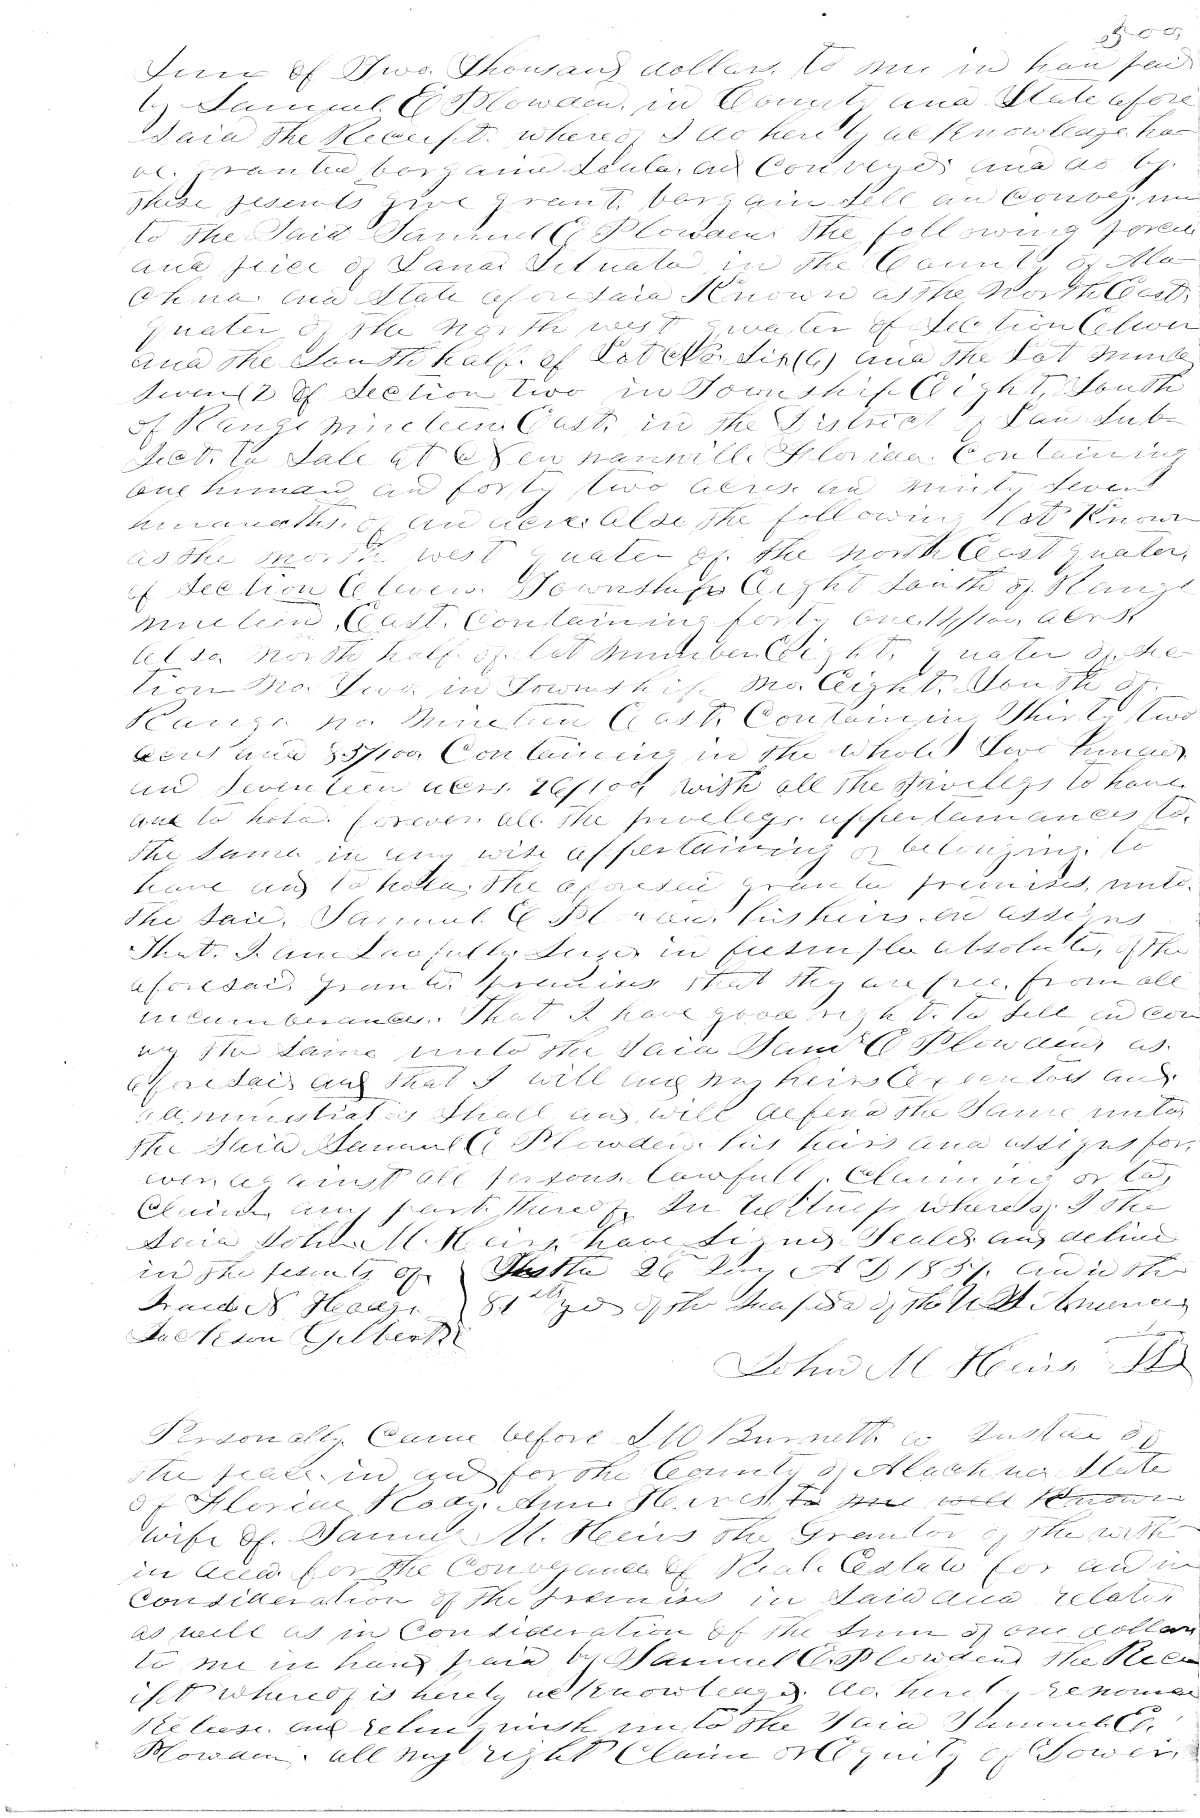 500
Sum of Two Thousand dollars to me in han paid
by Samuel E Plowden in County and State afore
said the Receipt whereof I do hereby acknowledge ha
ve granted bargaind sould and Conveyed and do by
these presents give grant bargain sell an Convey un
to the Said Samuel E Plowden the following
and peice of Land Situate in the County of Ala
chua and State aforesaid Known as the North East
quater of the North west quater of Section Eleven
and the South half of Lot No Six (6) and the Lot
Seven (7) of Section two in Township Eight South
of Range nineteen East in the District of Lan Sub-
ject to Sale at Newnansville Florida Containing
one hundred an forty two acres an ninty Seven
of an acre Also the following lot Known
as the north west quater of the North East quater
of Section Eleven Township Eight South of Range
nineteen East Containing forty one acres
Also North half of lot number Eight quater of Sec
tion No. Two in Township No. Eight South of
Range no nineteen East Containing Thirty two
acers and 85/100 Containing in the whole Two
an Seventeen acers 26/100 with all the privelegs to have
and to hold forever all the privelegs appertainances to
the same in any wise appertaining or belonging to
have and to hold the aforesaid granted premises unto
the said Samuel E Plowden his heirs an assigns
That I am Lawfully in feesimple absolute of the
aforesaid granted premises that they are free from all
incumberances That I have good right to sell an con
vey the Same unto the Said Saml E Plowden as
aforesaid and that I will and my heirs Executors and
administrators Shall and will defend the Same unto
the Said Samuel E Plowden his heirs and assigns for
ever against all persons lawfull Claiming or to
Claim any part thereof In Witness whereof I the
Said John M. Heirs have Signed Sealed and
in the presents of } the 26 A D 1857 and in the
N Heage } 81st of the of the U St America
Jackson Gilbert
John M Heirs

Personally Came before S W Burnett a Justice of
the peace in and for the County of Alachua State
of Florida Ann Heirs to me well Known
wife of Samuel M. Heirs the Grantor of the with
in deed for the Conveyance of Real Estate for and in
Consideration of the premises in Said related
as well as in Consideration of the sum of one dollar
to me in hand paid by Samuel E. Plowden the Rece
ipt whereof is hereby acknowledged do hereby
Release and relinquish unto the Said Samuel E.
Plowden all my right Claim or Equity of Dower